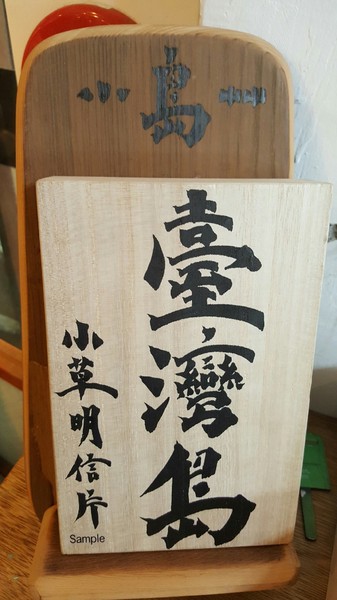 小島
臺灣島
小草明信片
Sample